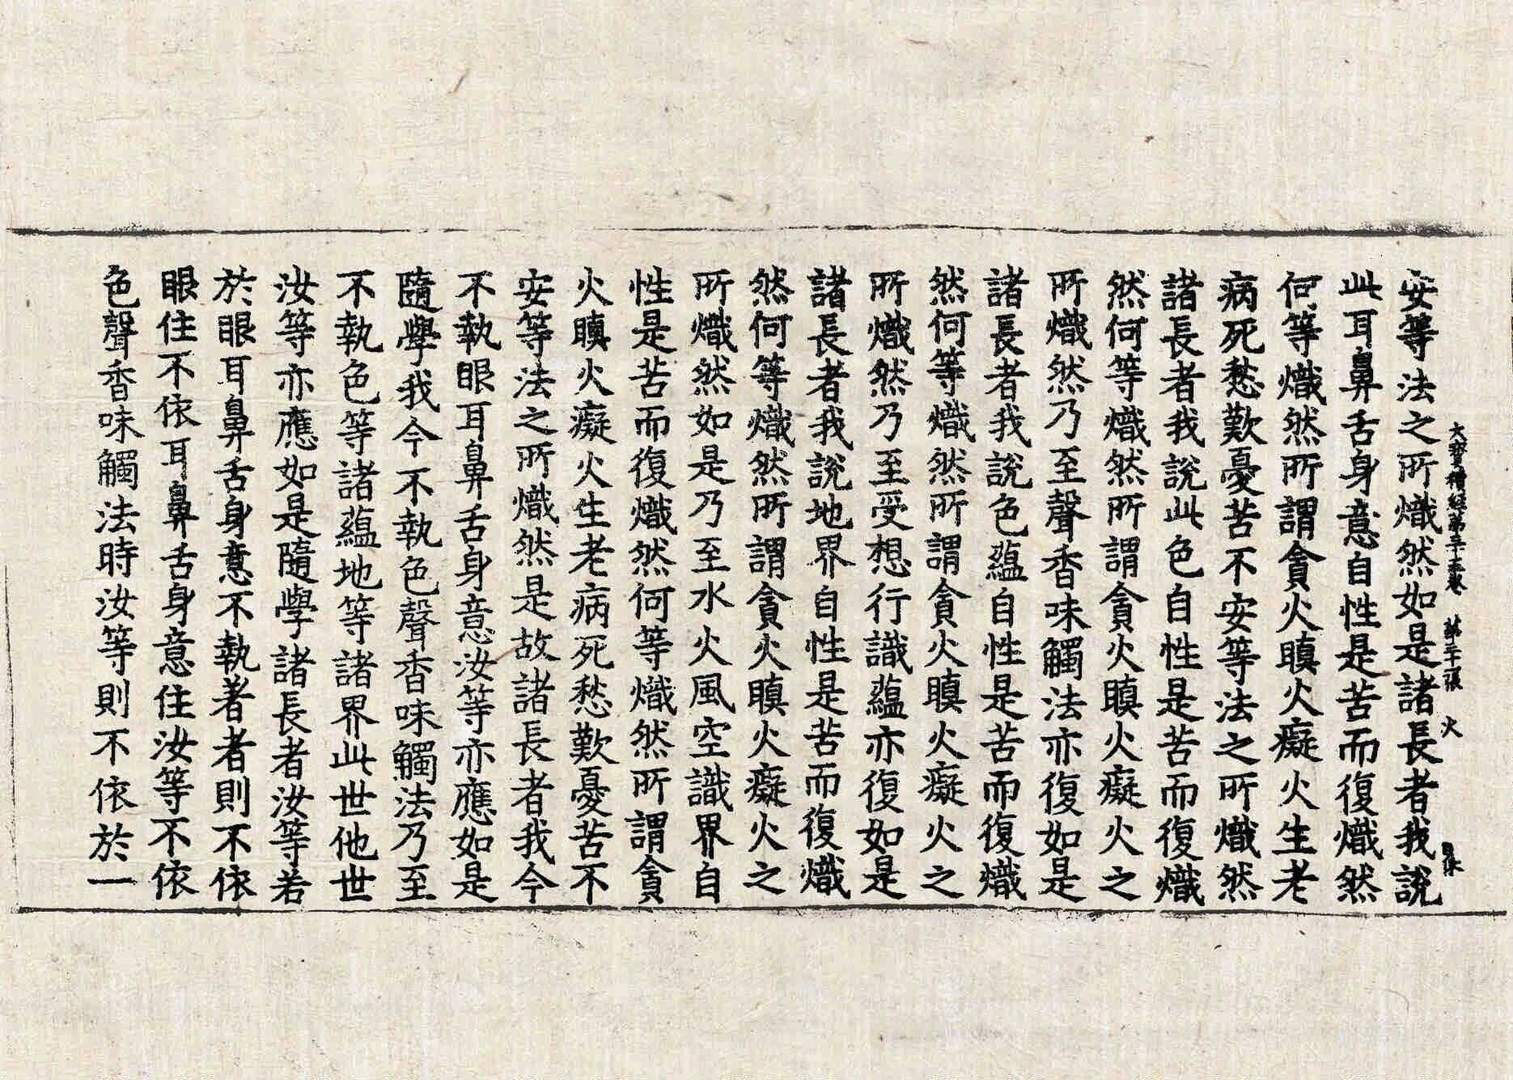 大寶積經第三十五卷 第三十一張 火
安等法之所熾然如是諸長者我說
此耳鼻舌身意自性是苦而復熾然
何等熾然所謂貪火瞋火癡火生老
病死愁歎憂苦不安等法之所熾然
諸長者我說此色自性是苦而復熾
然何等熾然所謂貪火瞋火癡火之
所熾然乃至聲香味觸法亦復如是
諸長者我說色蘊自性是苦而復熾
然何等熾然所謂貪火瞋火癡火之
所熾然乃至受想行識蘊亦復如是
諸長者我說地界自性是苦而復熾
然何等熾然所謂貪火瞋火癡火之
所熾然如是乃至水火風空識界自
性是苦而復熾然何等熾然所謂貪
火瞋火癡火生老病死愁歎憂苦不
安等法之所熾然是故諸長者我今
不執眼耳鼻舌身意汝等亦應如是
隨學我今不執色聲香味觸法乃至
不執色等諸蘊地等諸界此世他世
汝等亦應如是隨學諸長者汝等若
於眼耳鼻舌身意不執著者則不依
眼住不依耳鼻舌身意住汝等不依
色聲香味觸法時汝等則不依於一